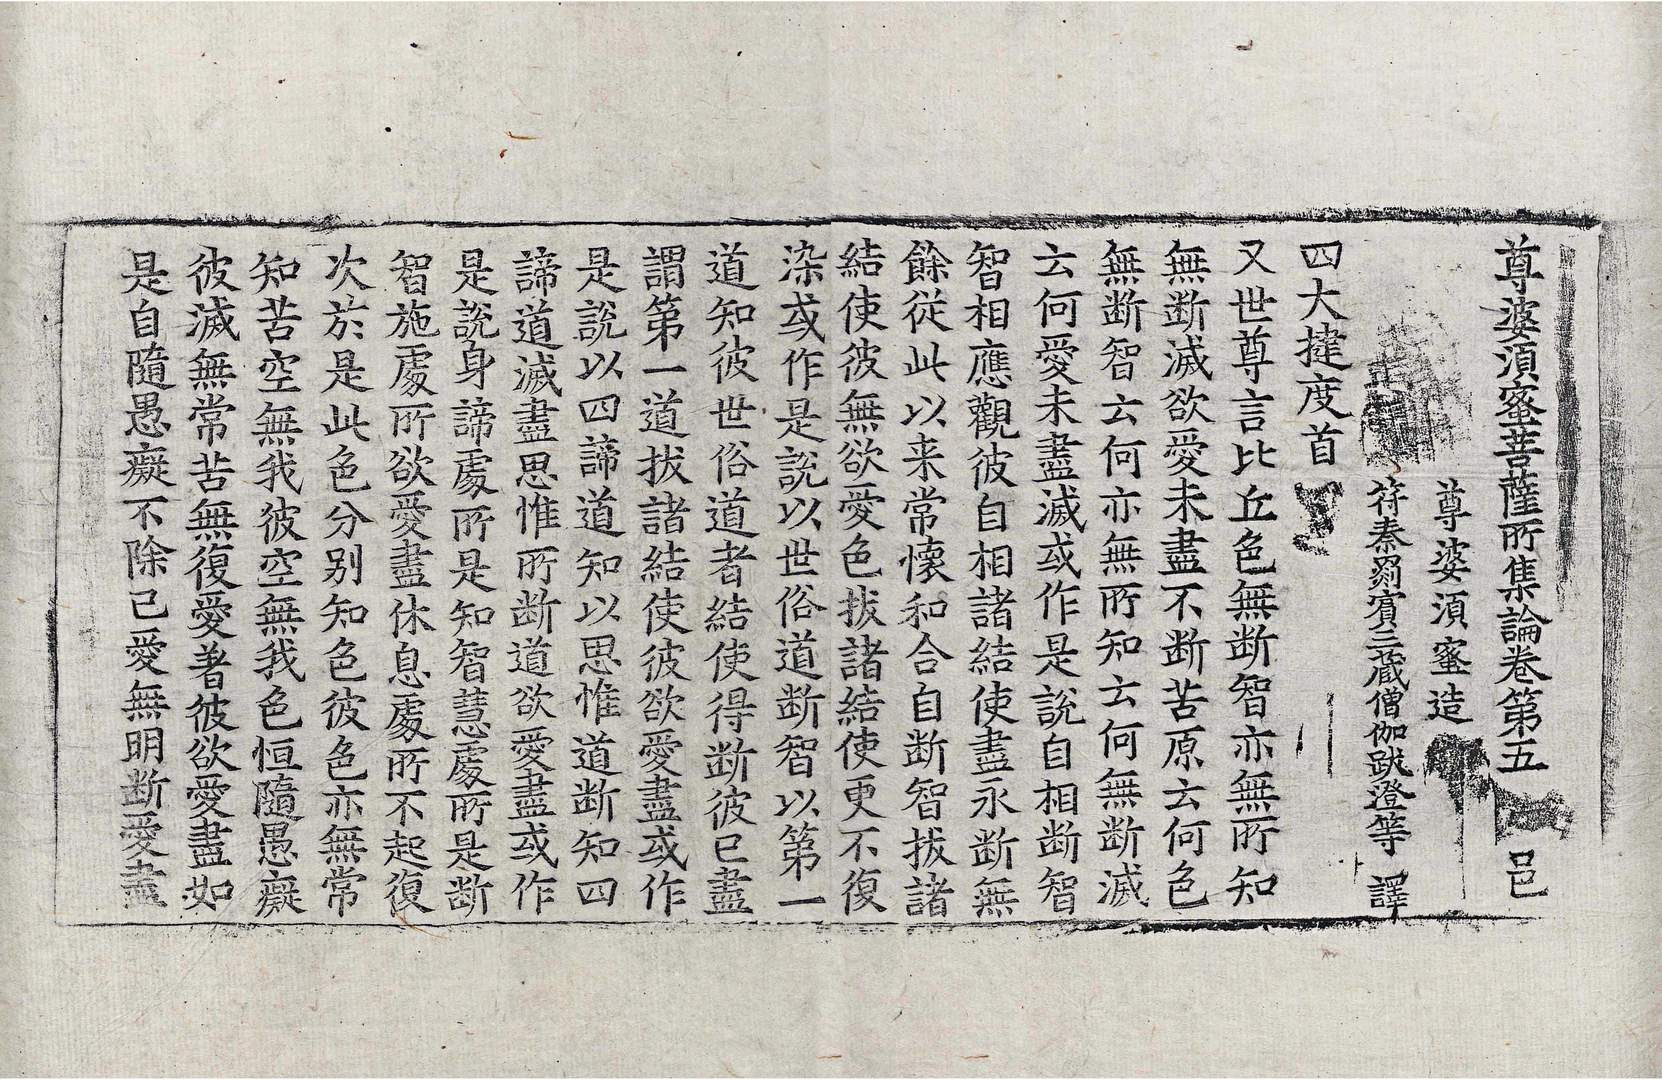 尊婆湏蜜菩薩所集論卷第五　邑
尊婆湏蜜造
符秦罽賓三藏僧伽跋澄等譯
四大揵度首
又世尊言比丘色無断智亦無所知
無断滅欲愛未盡不断苦原云何色
無断智云何亦無所知云何無断滅
云何愛未盡滅或作是說自相断智
智相應觀彼自相諸結使盡永断無
餘從此以来常懷和合自断智拔諸
結使彼無欲愛色拔諸結使更不復
染或作是說以世俗道断智以第一
道知彼世俗道者結使得断彼已盡
謂第一道拔諸結使彼欲愛盡或作
是說以四諦道知以思惟道断知四
諦道滅盡思惟所断道欲愛盡或作
是說身諦處所是知智慧處所是断
智施處所欲愛盡休息處所不起復
次於是此色分别知色彼色亦無常
知苦空無我彼空無我色恒隨愚癡
彼滅無常苦無復愛著彼欲愛盡如
是自隨愚癡不除已愛無明断愛盡